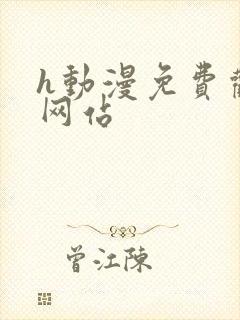 h動漫免費觀
网站
曾江陳